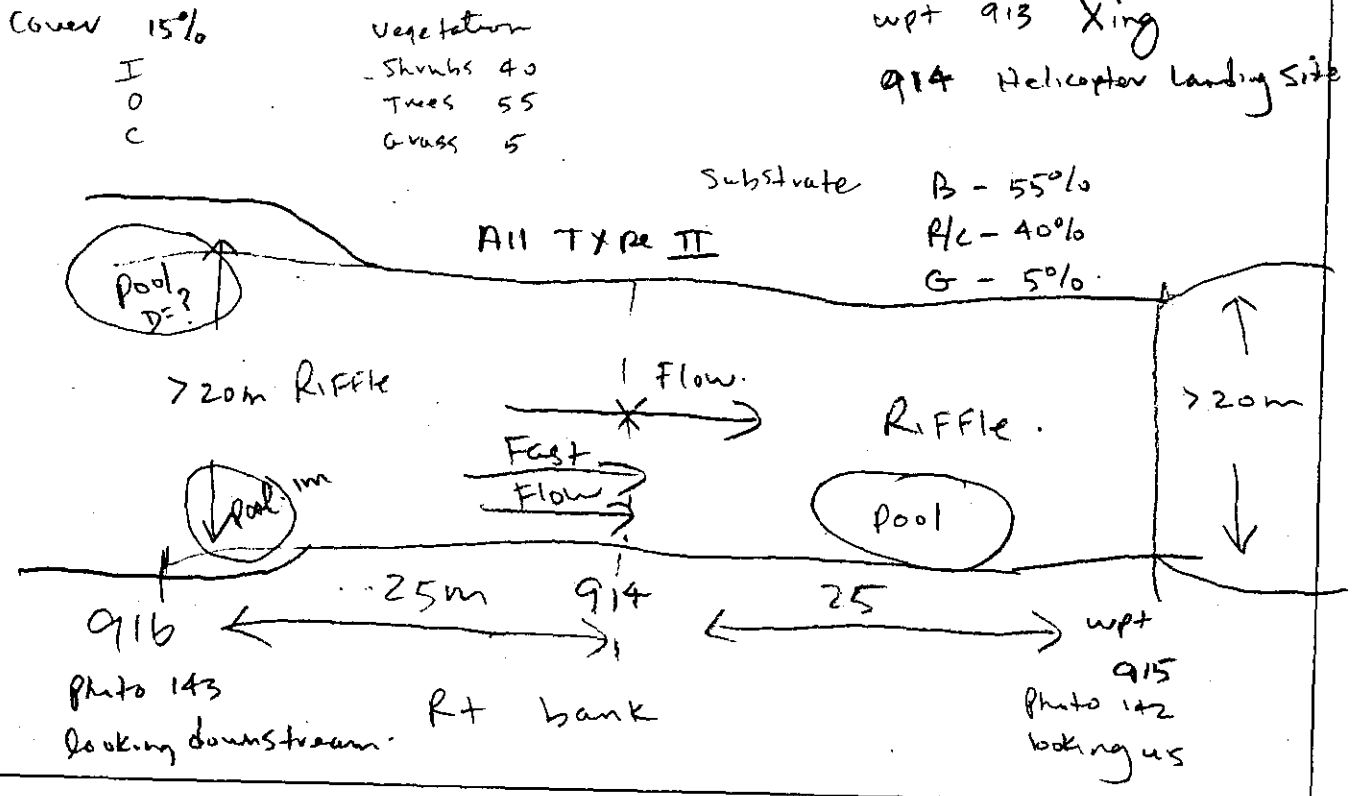 Cover 15%
I
O
C
Vegetation
- Shrubs 40
Trees 55
Grass 5
wpt 913 Xing
914 Helicopter Landing Site
Substrate B - 55%
R/C - 40%
G - 5%
All Type II
Pool
D=?
>20m Riffle
Flow.
Fast
Flow
Riffle.
>20m
Pool 1m
Pool
25m
914
25
916
photo 143
looking downstream.
Rt bank
wpt
915
Photo 142
looking us